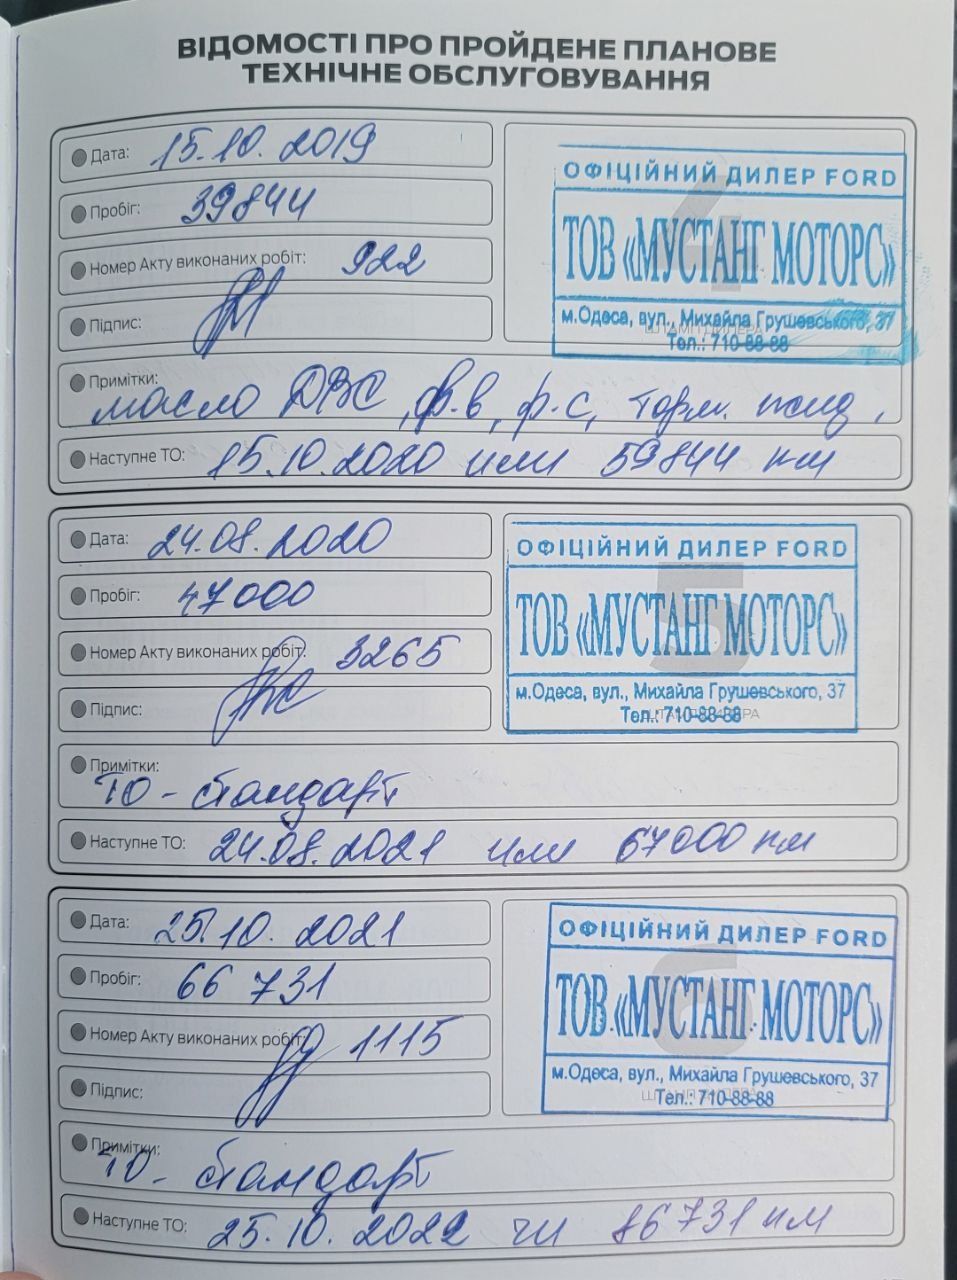 ВІДОМОСТІ ПРО ПРОЙДЕНЕ ПЛАНОВЕ
ТЕХНІЧНЕ ОБСЛУГОВУВАННЯ
Дата: 15.10.2019
Пробіг: 39844
Номер Акту виконаних робіт: 922
Підпис:
4
ОФІЦІЙНИЙ ДИЛЕР FORD
ТОВ «МУСТАНГ МОТОРС»
м.Одеса, вул., Михайла Грушевського, 37
ШТАМП ДИЛЕРА
Тел.: 710-88-88
Примітки:
масло ДВС, ф.в, ф.с, торм. жид,
Наступне ТО: 15.10.2020 или 59844 км
Дата: 24.08.2020
Пробіг: 47000
Номер Акту виконаних робіт: 3265
Підпис:
5
ОФІЦІЙНИЙ ДИЛЕР FORD
ТОВ «МУСТАНГ МОТОРС»
м.Одеса, вул., Михайла Грушевського, 37
ШТАМП ДИЛЕРА
Тел.: 710-88-88
Примітки:
ТО - стандарт
Наступне ТО: 24.08.2021 или 67000 км
Дата: 25.10.2021
Пробіг: 66 731
Номер Акту виконаних робіт: 1115
Підпис:
6
ОФІЦІЙНИЙ ДИЛЕР FORD
ТОВ «МУСТАНГ МОТОРС»
м.Одеса, вул., Михайла Грушевського, 37
ШТАМП ДИЛЕРА
Тел.: 710-88-88
Примітки:
ТО - стандарт
Наступне ТО: 25.10.2022 чи 86731 км